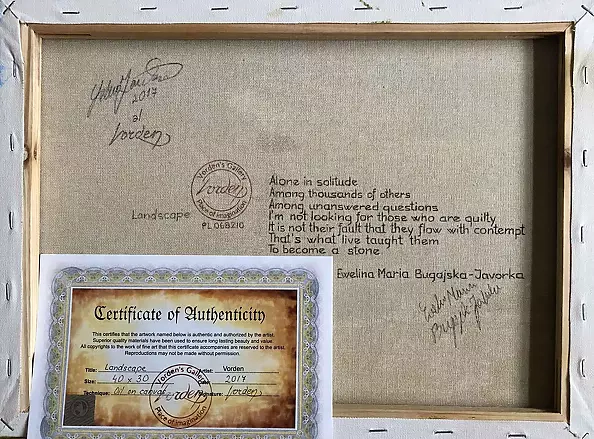 2017
al
Vorden
Vorden's Gallery
Vorden
Place of Imagination
PL 068210
Landscape
Alone in solitude
Among thousands of others
Among unanswered questions
I'm not looking for those who are guilty
It is not their fault that they flow with contempt
That's what live taught them
To become a stone
Ewelina Maria Bugajska-Javorka
Certificate of Authenticity
This certifies that the artwork named below is authentic and authorized by the artist.
Superior quality materials have been used to ensure long lasting beauty and value.
All copyrights to the work of fine art that this certificate accompanies are reserved to the artist.
Reproductions may not be made without permission.
Title: Landscape Artist: Vorden
Size: 40 x 30 2017
Technique: Oil on canvas Signature: Vorden
Vorden's Gallery
Vorden
Place of Imagination